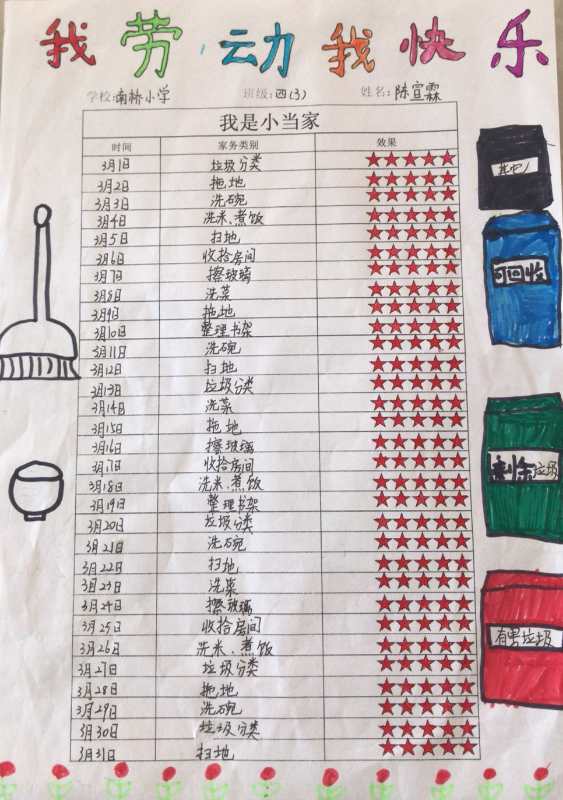 我劳动我快乐
学校:南桥小学 班级:四(3) 姓名:陈宣霖
我是小当家
时间 家务类别 效果
3月1日 垃圾分类
3月2日 拖地
3月3日 洗碗
3月4日 洗米、煮饭
3月5日 扫地
3月6日 收拾房间
3月7日 擦玻璃
3月8日 洗菜
3月9日 拖地
3月10日 整理书架
3月11日 洗碗
3月12日 扫地
3月13日 垃圾分类
3月14日 洗菜
3月15日 拖地
3月16日 擦玻璃
3月17日 收拾房间
3月18日 洗米、煮饭
3月19日 整理书架
3月20日 垃圾分类
3月21日 洗碗
3月22日 扫地
3月23日 洗菜
3月24日 擦玻璃
3月25日 收拾房间
3月26日 洗米、煮饭
3月27日 垃圾分类
3月28日 拖地
3月29日 洗碗
3月30日 垃圾分类
3月31日 扫地
可回收
剩余垃圾
有害垃圾